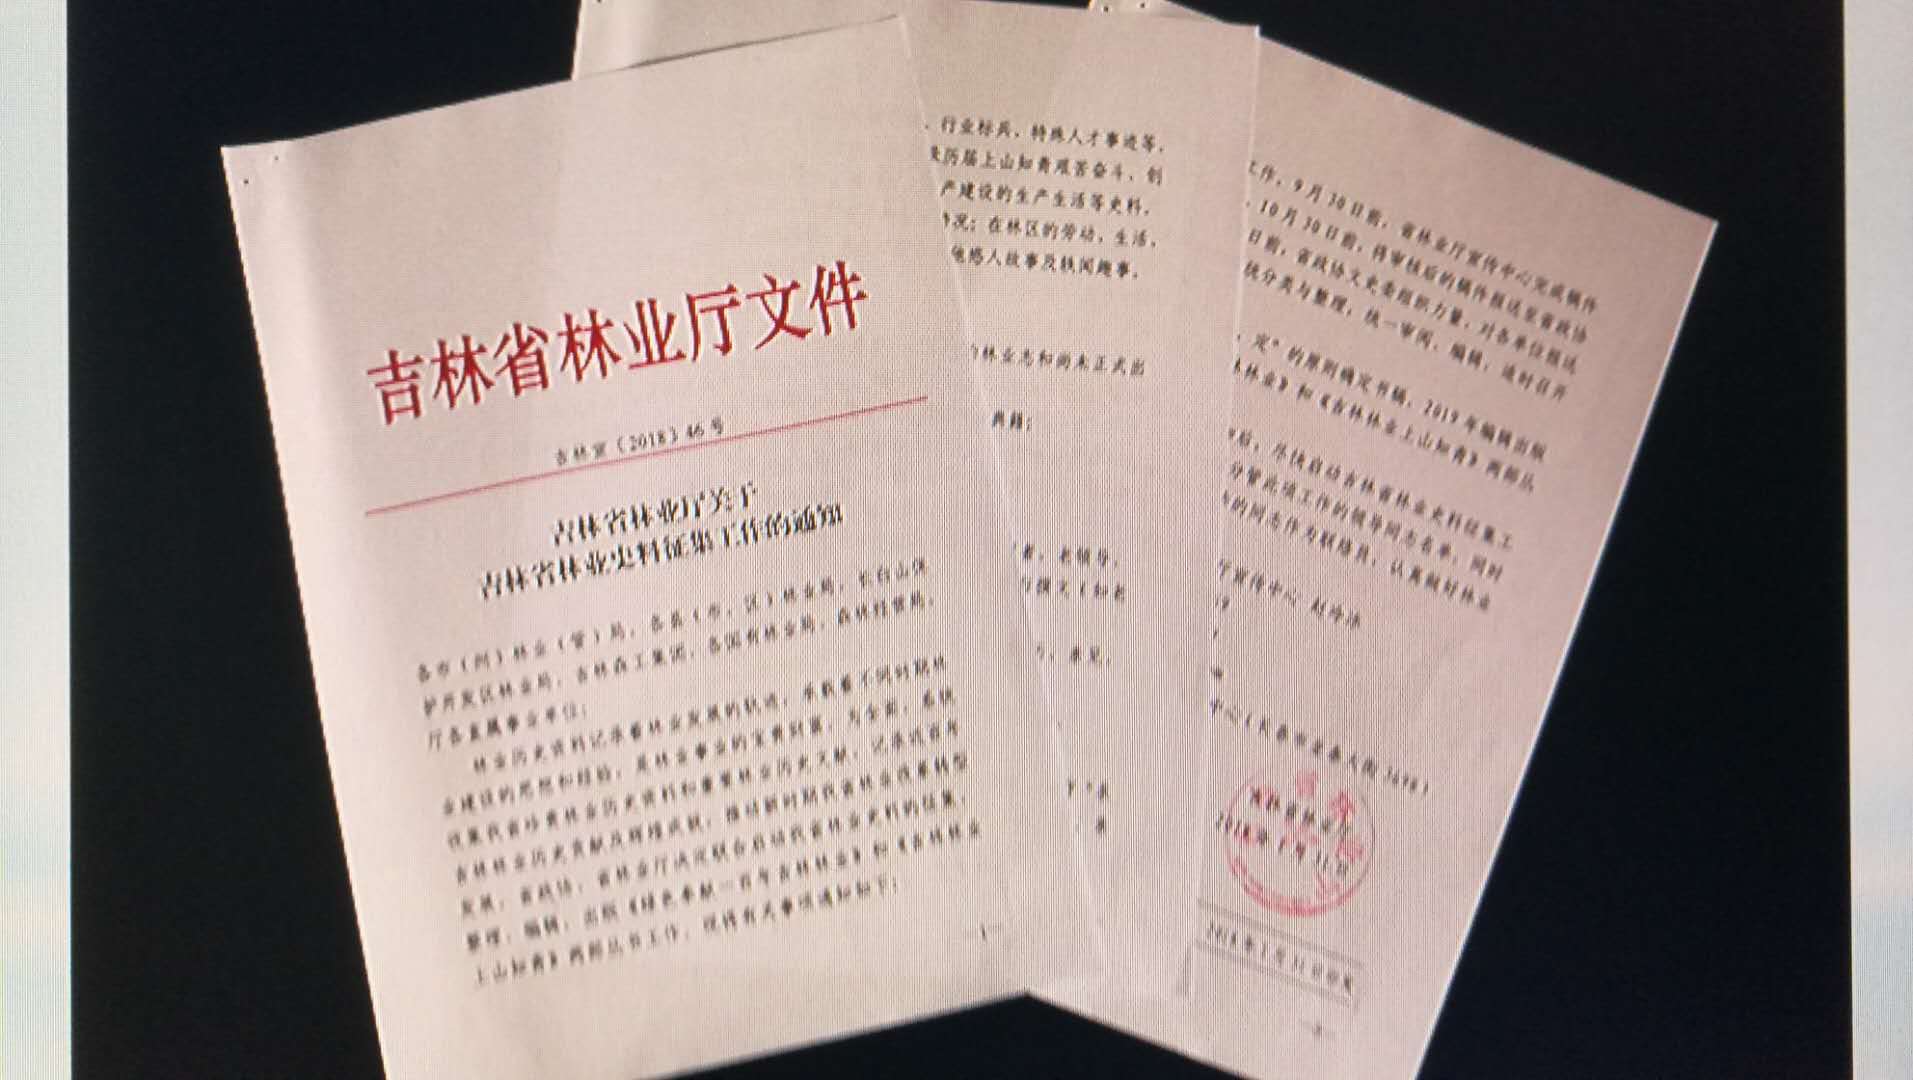 吉林省林业厅文件
〔2018〕46号
吉林省林业厅关于
吉林省林业史料征集工作的通知
各市(州)林业(管)局,各县(市、区)林业局,长白山保
护开发区林业局,吉林森工集团,各国有林业局,森林经营局,
厅各直属事业单位:
林业历史资料记录着林业发展的轨迹,承载着不同时期林
业建设的思想和经验,是林业事业的宝贵财富。为全面、系统
收集我省珍贵林业历史资料和重要林业历史文献,记录近百年
吉林林业历史贡献及辉煌成就,推动新时期我省林业改革转型
发展,省政协、省林业厅决定联合启动我省林业史料的征集、
整理、编辑、出版《绿色奉献—百年吉林林业》和《吉林林业
上山知青》两部丛书工作。现将有关事项通知如下:
、行业标兵、特殊人才事迹等。
历届上山知青艰苦奋斗、创
产建设的生产生活等史料。
情况;在林区的劳动、生活、
他感人故事及轶闻趣事。
林业志和尚未正式出
典籍;
者、老领导、
撰文(如老
、亲见、
工作。9月30日前,省林业厅宣传中心完成稿件
。10月30日前,将审核后的稿件报送至省政协
日前,省政协文史委组织力量,对各单位报送
统分类与整理,统一审阅、编辑,适时召开
定"的原则确定书稿,2019年编辑出版
林业》和《吉林林业上山知青》两部丛
后,尽快启动吉林省林业史料征集工
分管此项工作的领导同志名单,同时
的同志作为联络员,认真做好林业
宣传中心
中心(长春市亚泰大街3698
吉林省林业厅